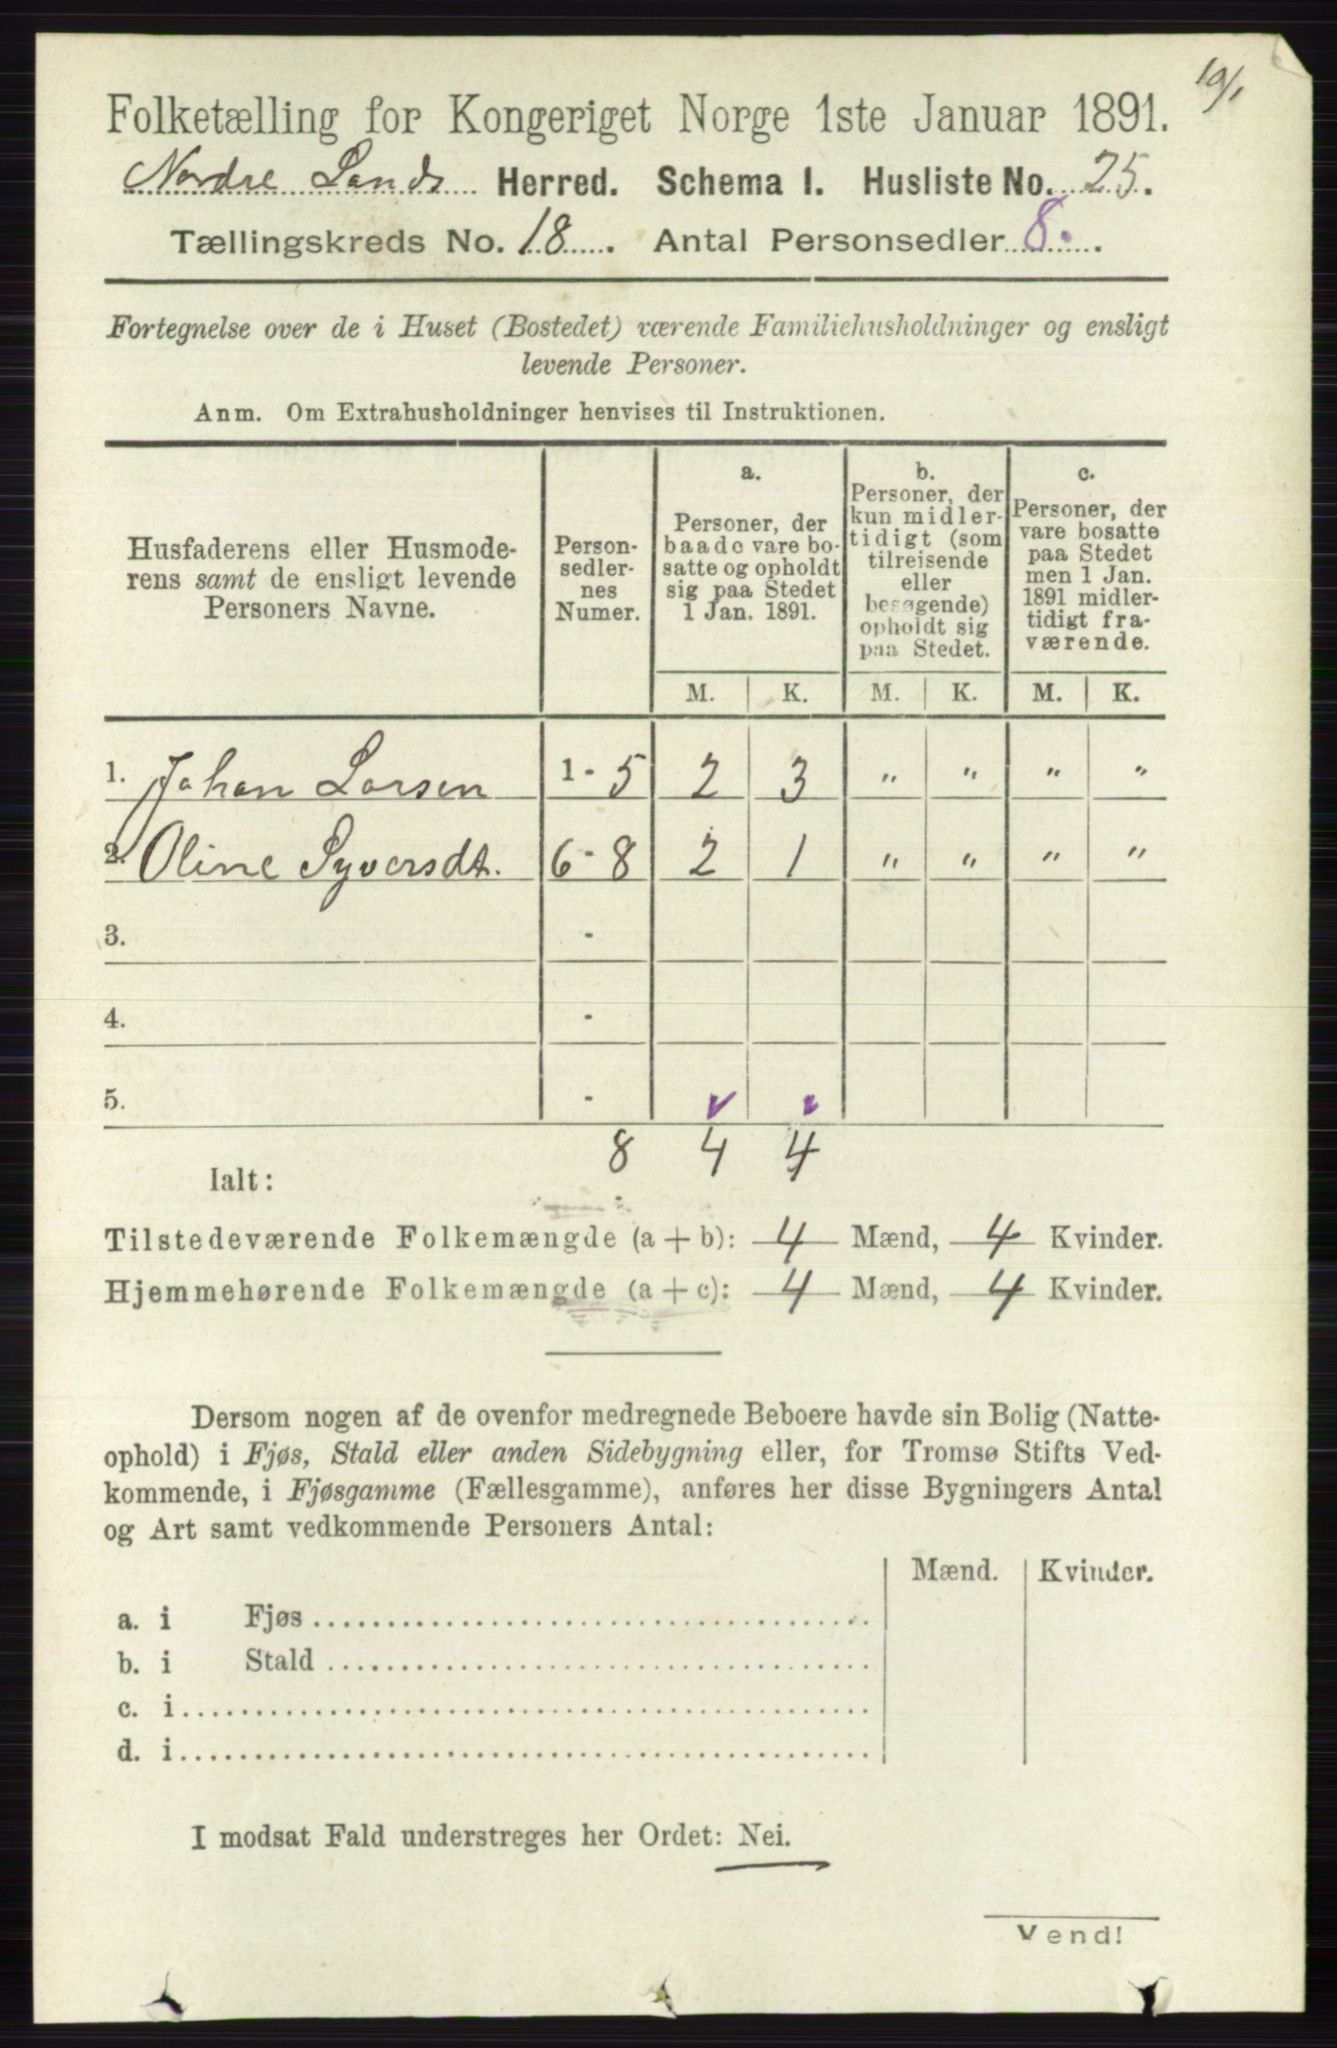 19/1
Folketælling for Kongeriget Norge 1ste Januar 1891.
Nordre Lands Herred. Schema I. Husliste No. 25.
Tællingskreds No. 18. Antal Personsedler 8.
Fortegnelse over de i Huset (Bostedet) værende Familiehusholdninger og ensligt
levende Personer.
Anm. Om Extrahusholdninger henvises til Instruktionen.
Husfaderens eller Husmode-
rens samt de ensligt levende
Personers Navne.
Person-
sedler-
nes
Numer.
a.
Personer, der
baade vare bo-
satte og opholdt
sig paa Stedet
1 Jan. 1891.
b.
Personer, der
kun midler-
tidigt (som
tilreisende
eller
besøgende)
opholdt sig
paa Stedet.
c.
Personer, der
vare bosatte
paa Stedet
men 1 Jan.
1891 midler-
tidigt fra-
værende.
M. K. M. K. M. K.
1. Johan Larsen 1-5 2 3 " " " "
2. Oline Syversdt. 6-8 2 1 " " " "
3. -
4. -
5. -
Ialt: 8 4 4
Tilstedeværende Folkemængde (a + b): 4 Mænd, 4 Kvinder.
Hjemmehørende Folkemængde (a + c): 4 Mænd, 4 Kvinder.
Dersom nogen af de ovenfor medregnede Beboere havde sin Bolig (Natte-
ophold) i Fjøs, Stald eller anden Sidebygning eller, for Tromsø Stifts Ved-
kommende, i Fjøsgamme (Fællesgamme), anføres her disse Bygningers Antal
og Art samt vedkommende Personers Antal:
Mænd. Kvinder.
a. i Fjøs
b. i Stald
c. i
d. i
I modsat Fald understreges her Ordet: Nei.
Vend!